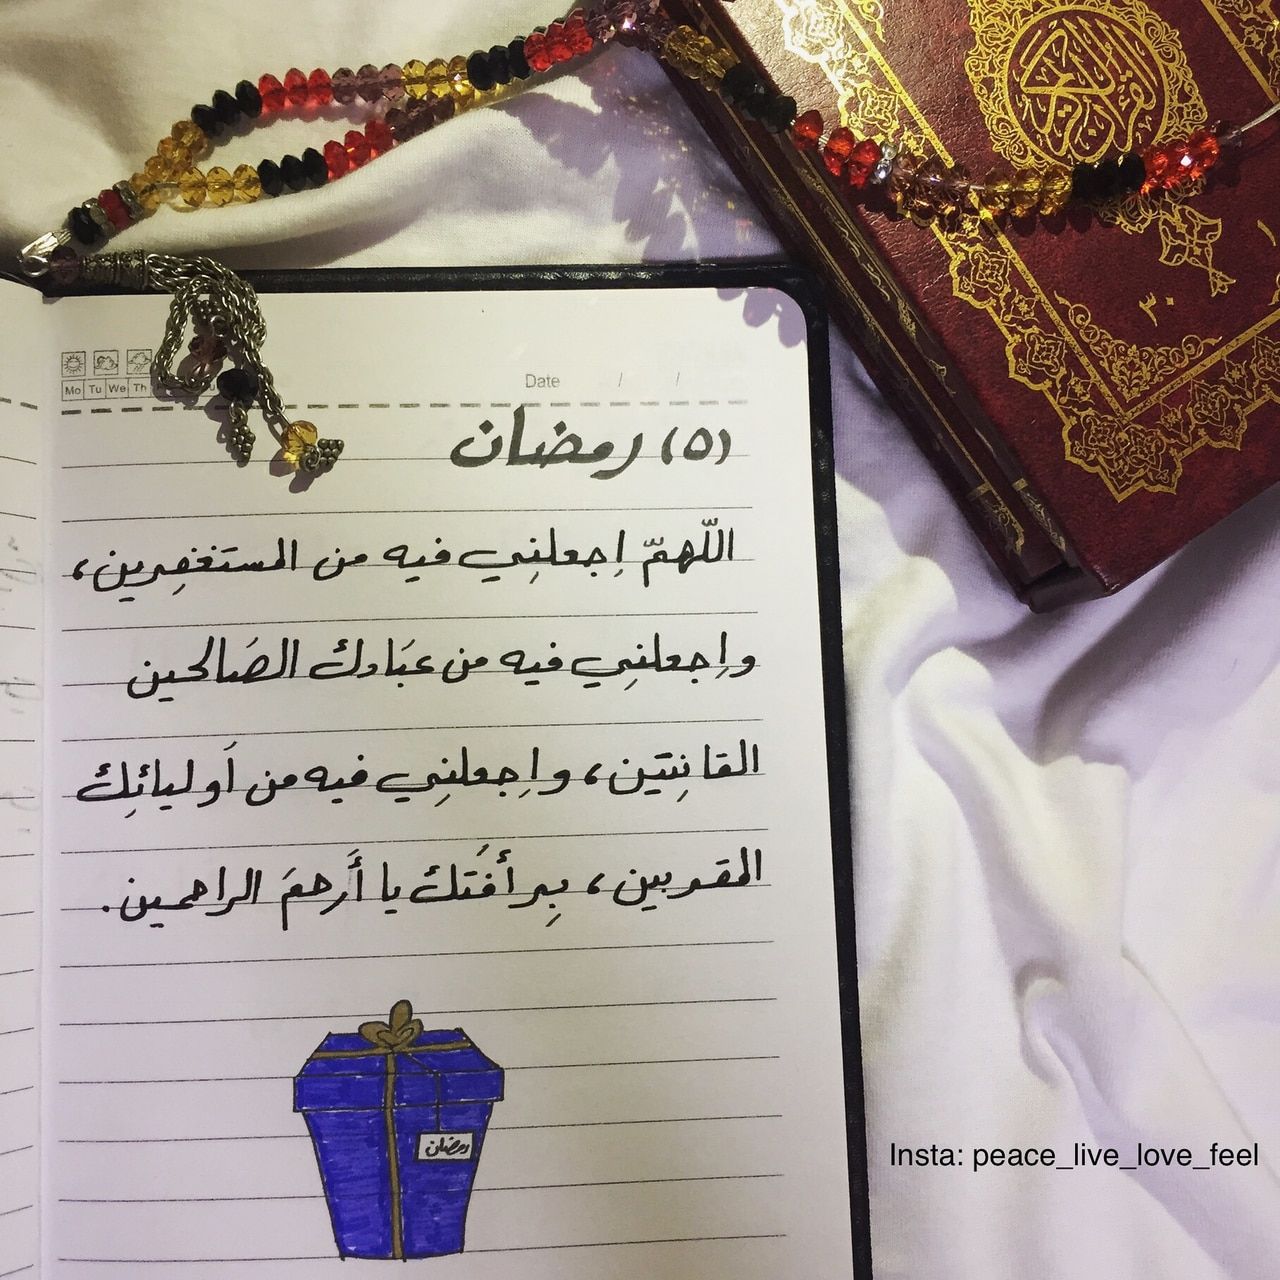 القرآن الكريم
٣٠
Mo Tu We Th
Date / /
(٥) رمضان
اللّهمّ إجعلنِي فيه من المستغفِرين،
وإجعلنِي فيه من عبَادك الصَالحين
القانِتين، وإجعلنِي فيه من أَوليائِك
المقربين، بِرأفَتك يا أَرحمَ الراحمين.
رمضان
Insta: peace_live_love_feel